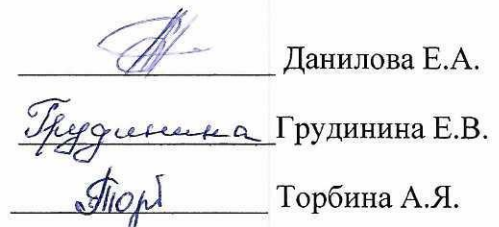 Данилова Е.А.
Грудинина Грудинина Е.В.
Торб Торбина А.Я.